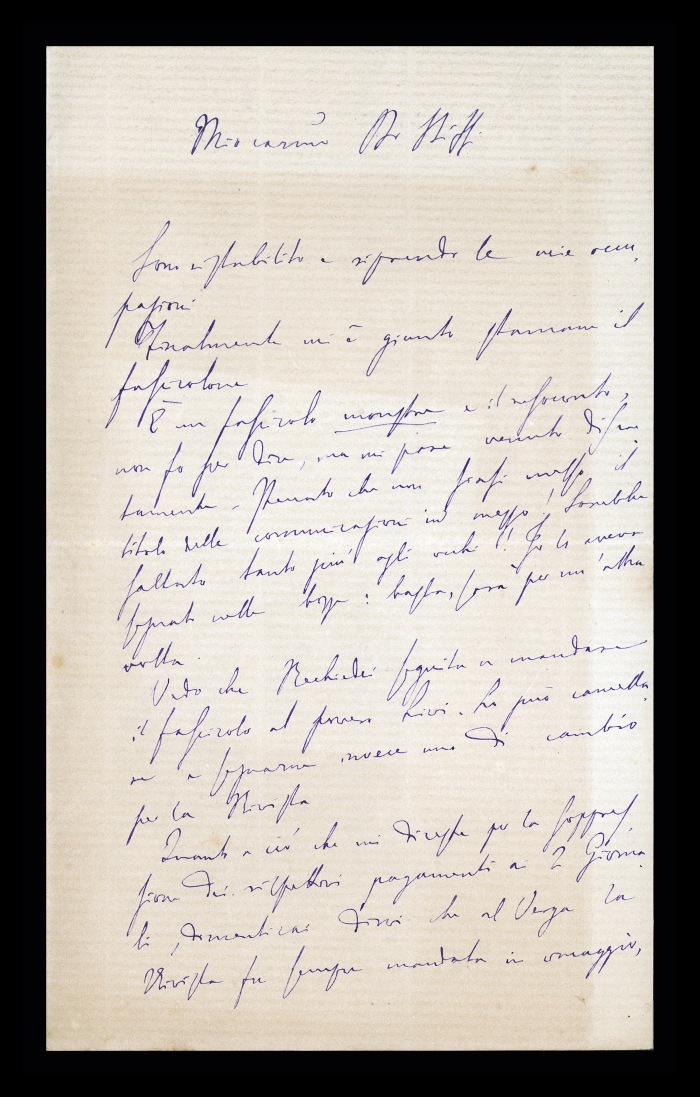 Mio carmo Dr Stiff.
Sono ristabilito e riprendo le mie occu,
pazioni
Finalmente mi è giunto stamane il
fascicolone
È un fascicolo monstre e il resoconto,
non fo per dire, mi pare venuto discre
tamente. Peccato che non siasi messo il
titolo delle comunicazioni in mezzo! Sarebbe
saltato tanto più agli occhi!! Io lo aveva
segnato nelle bozze: basta, sarà per un'altra
volta.
Vedo che Rechiedei seguita a mandare
il fascicolo al povero Livi. Lo può cancella,
re e segnarne invece uno di cambio
per la Rivista
Quanto a ciò che mi diceste per la soppres
sione dei rispettivi pagamenti ai 2 Giorna
li, dimenticai dirvi che al Verga la
Rivista fu sempre mandata in omaggio,